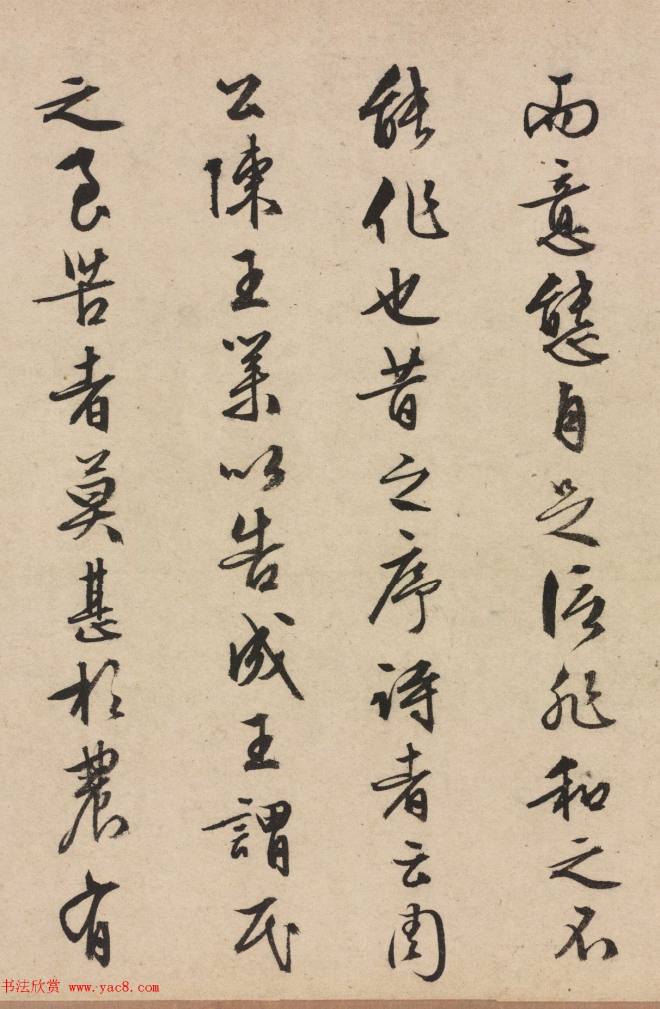 而意態自足信非和之不
能作也昔之序詩者云周
公陳王業以告成王謂民
之至苦者莫甚於農有
书法欣赏 www.yac8.com